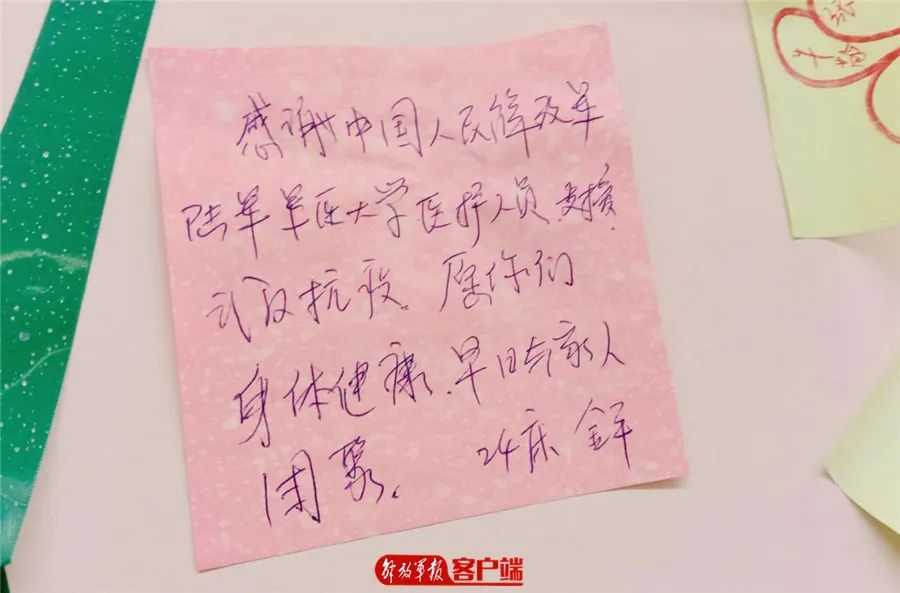 感谢中国人民解放军
陆军军医大学医护人员支援
武汉抗疫.愿你们
身体健康、早日与家人
团聚.
24床
解放军报客户端